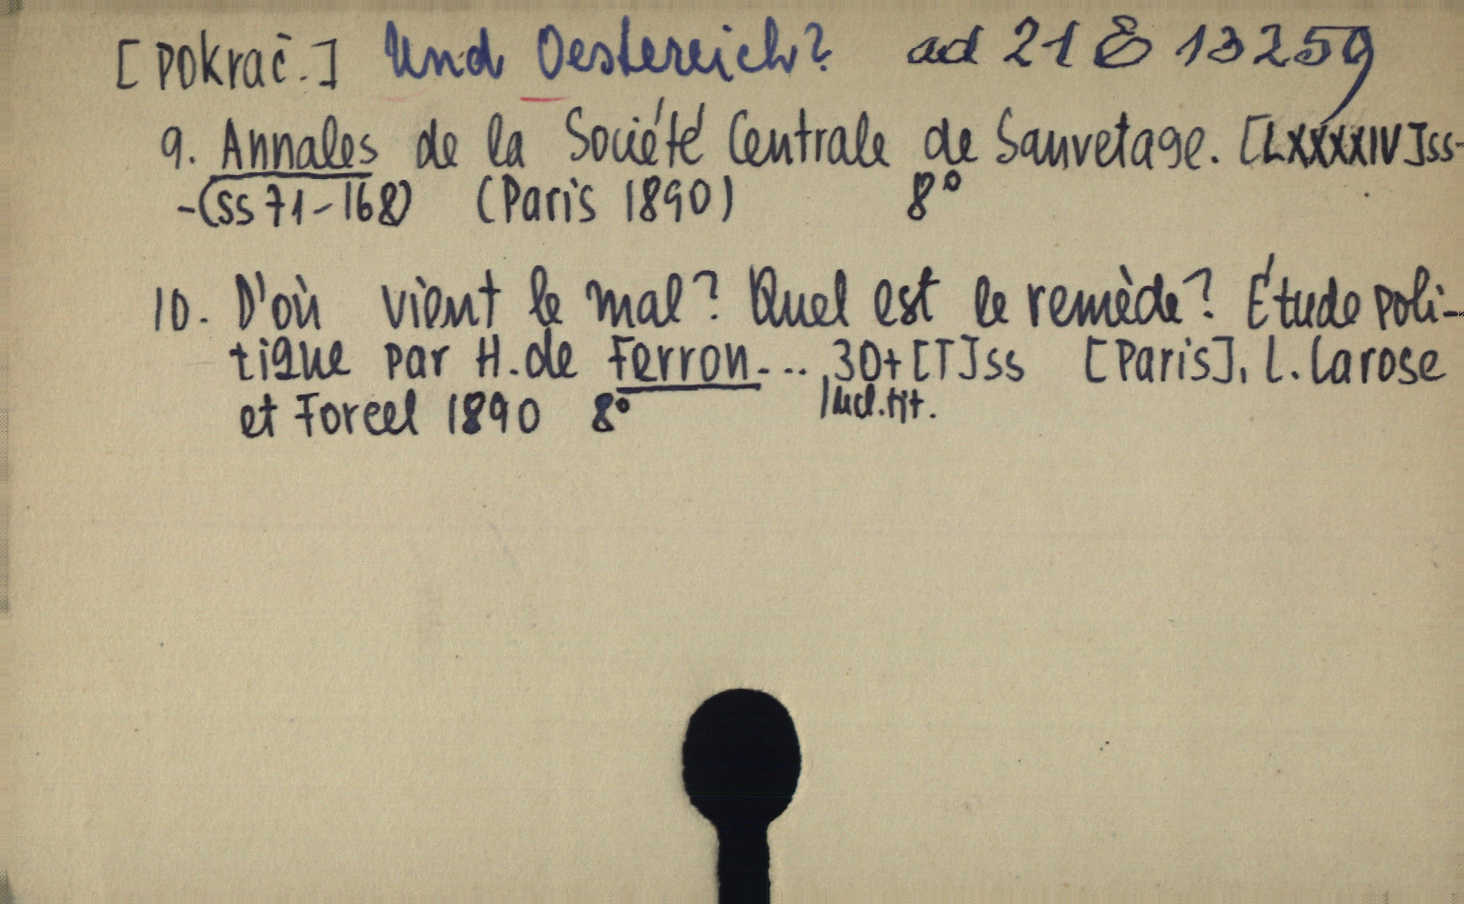 [pokrač.] Und Oestereich? ad 21 E 13259
9. Annales de la Société Centrale de Sauvetage. [LXXXXIV]ss-
-(ss 71-168) (Paris 1890) 8°
10. D'où vient le mal? Quel est le remède? Étude poli-
tique par H. de Ferron... 30+[T]ss [Paris], L. Larose
et Forcel 1890 8° Incl. tit.